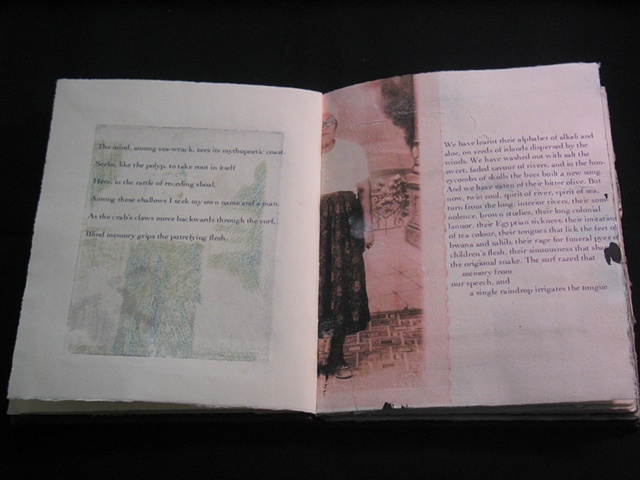 The mind, among sea-wrack, sees its mythopoetic coast.
Seeks, like the polyp, to take root in itself
Here, in the rattle of receding shoal,
Among these shallows I seek my own name and a man.
As the crab's claws move backwards through the surf,
Blind memory grips the putrefying flesh.
We have learnt their alphabet of alkali and
aloe, on seeds of islands dispersed by the
winds. We have washed out with salt the
sweet, faded savour of rivers, and in the hon-
eycombs of skulls the bees built a new song.
And we have eaten of their bitter olive. But
now, twin soul, spirit of river, spirit of sea,
turn from the long, interior rivers, their som-
nolence, brown studies, their long colonial
languor, their Egyptian sickness, their imitation
of tea colour, their tongues that lick the feet of
bwana and sahib, their rage for funeral pyres of
children's flesh, their sinuousness that
the original snake. The surf razed that
memory from
our speech, and
a single raindrop irrigates the tongue